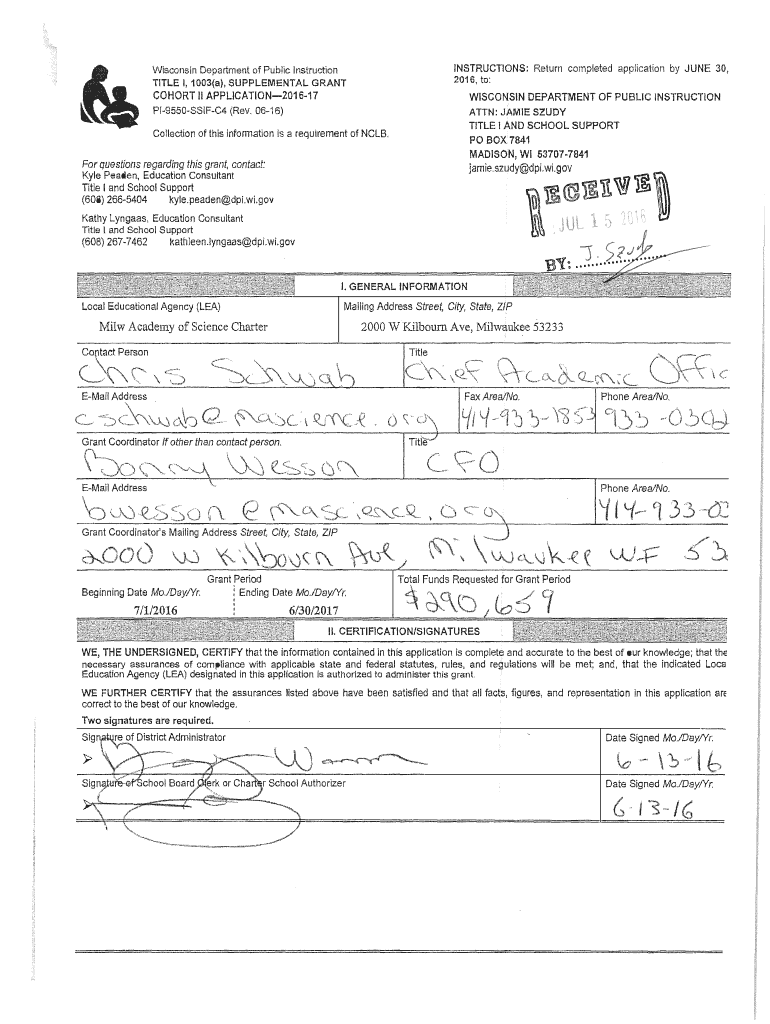 Wisconsin Department of Public Instruction
TITLE I, 1003(a), SUPPLEMENTAL GRANT
COHORT II APPLICATION—2016-17
PI-9550-SSIF-C4 (Rev. 06-16)
Collection of this information is a requirement of NCLB.
For questions regarding this grant, contact:
Kyle Peaden, Education Consultant
Title I and School Support
(608) 266-5404 kyle.peaden@dpi.wi.gov
Kathy Lyngaas, Education Consultant
Title I and School Support
(608) 267-7462 kathleen.lyngaas@dpi.wi.gov
INSTRUCTIONS: Return completed application by JUNE 30,
2016, to:
WISCONSIN DEPARTMENT OF PUBLIC INSTRUCTION
ATTN: JAMIE SZUDY
TITLE I AND SCHOOL SUPPORT
PO BOX 7841
MADISON, WI 53707-7841
jamie.szudy@dpi.wi.gov
RECEIVED
JUL 15 2016
BY: J. Szudy
I. GENERAL INFORMATION
Local Educational Agency (LEA) Mailing Address Street, City, State, ZIP
Milw Academy of Science Charter 2000 W Kilbourn Ave, Milwaukee 53233
Contact Person Title
Chris Schwab Chief Academic Offic
E-Mail Address Fax Area/No. Phone Area/No.
cschwab@mascience.org 414-933-1853 933-0302
Grant Coordinator If other than contact person. Title
Bonny Wesson CFO
E-Mail Address Phone Area/No.
bwesson@mascience.org 414-933-03
Grant Coordinator's Mailing Address Street, City, State, ZIP
2000 W Kilbourn Ave, Milwaukee WI 53
Grant Period Total Funds Requested for Grant Period
Beginning Date Mo./Day/Yr. Ending Date Mo./Day/Yr.
7/1/2016 6/30/2017 $290,659
II. CERTIFICATION/SIGNATURES
WE, THE UNDERSIGNED, CERTIFY that the information contained in this application is complete and accurate to the best of our knowledge; that the
necessary assurances of compliance with applicable state and federal statutes, rules, and regulations will be met; and, that the indicated Loca
Education Agency (LEA) designated in this application is authorized to administer this grant.
WE FURTHER CERTIFY that the assurances listed above have been satisfied and that all facts, figures, and representation in this application are
correct to the best of our knowledge.
Two signatures are required.
Signature of District Administrator Date Signed Mo./Day/Yr.
6-13-16
Signature of School Board Clerk or Charter School Authorizer Date Signed Mo./Day/Yr.
6-13-16